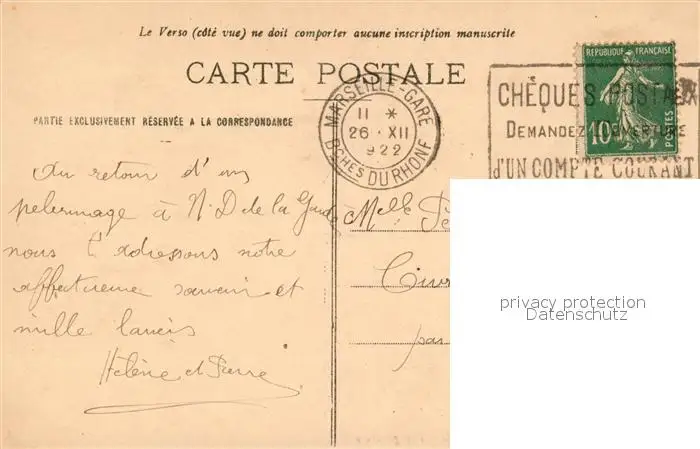 Le Verso (côté vue) ne doit comporter aucune inscription manuscrite
CARTE POSTALE
PARTIE EXCLUSIVEMENT RÉSERVÉE A LA CORRESPONDANCE
MARSEILLE-GARE
11 *
26 · XII
922
BCHES DU RHONE
CHÈQUES POSTAUX
DEMANDEZ L'OUVERTURE
d'UN COMPTE COURANT
REPUBLIQUE FRANÇAISE
10
POSTES
Au retour d'un
pelerinage à N. D de la Garde
nous l'adressons notre
affectueux souvenir et
mille
Hélène et Pierre
à Melle
par
privacy protection
Datenschutz